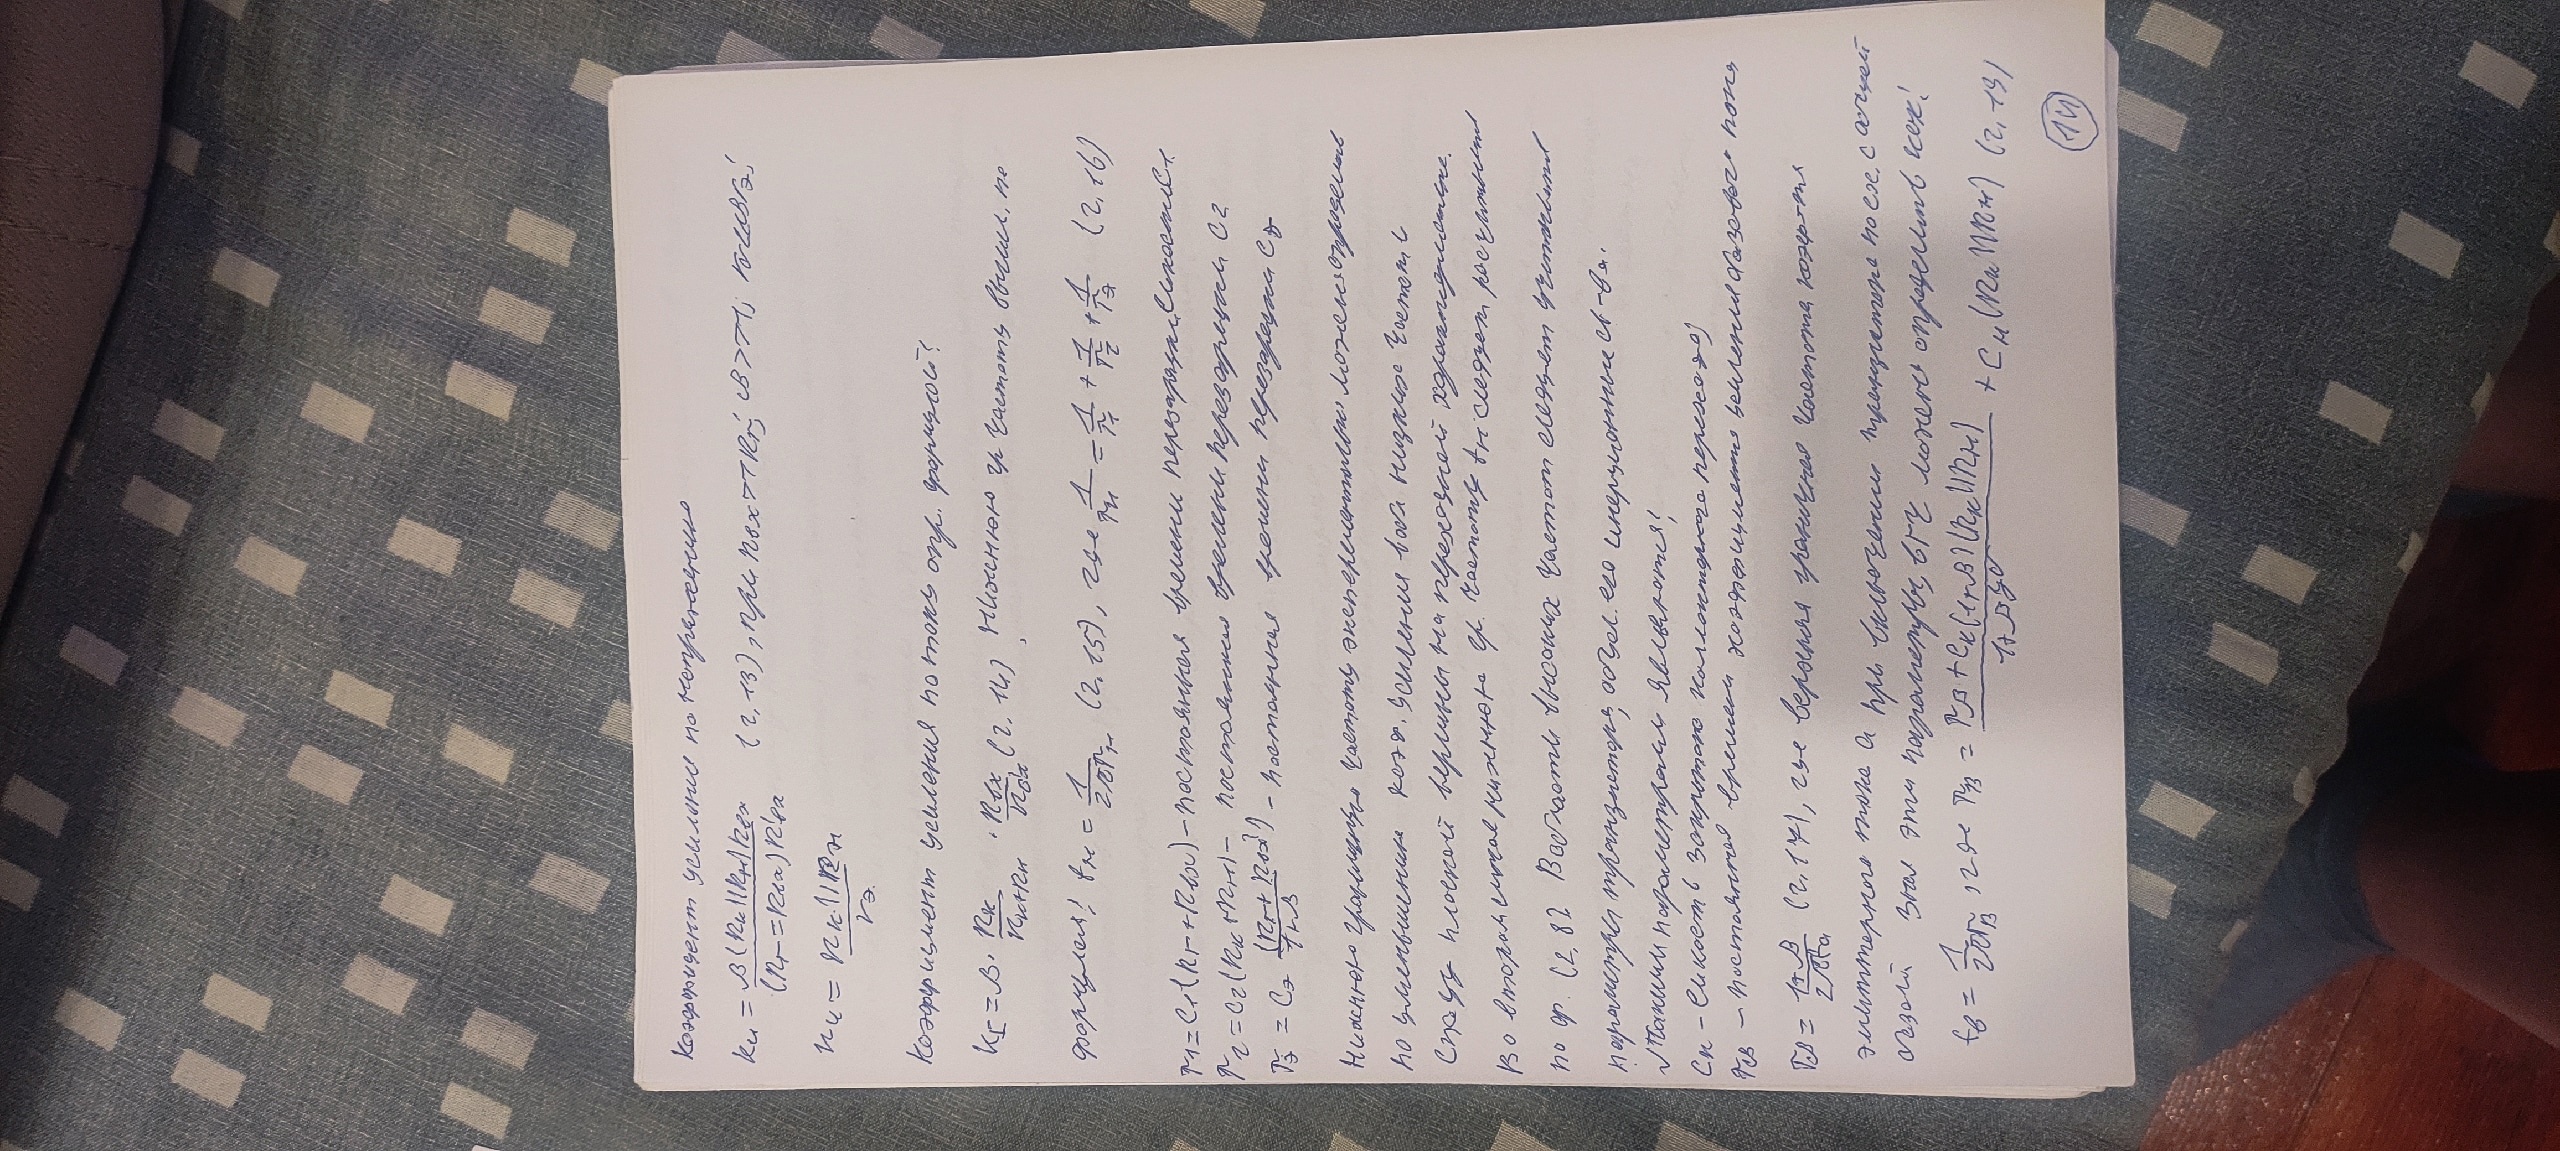 Коэффициент усиления по напряжению
Ku = β(Rк||Rн)Rвх / (Rг = Rвх)R'вх (2.13), при Rвх >> Rг; и β >> 1; Rвх≈βrэ:
Ku = Rк||Rн / rэ
Коэффициент усиления по току опр. формулой:
KI = β · Rк / Rк+Rн · Rвх / R'вх (2.14). Нижнюю гр частоту вычисл. по
формуле: fн = 1 / 2πτн (2.15), где 1/τн = 1/τ1 + 1/τ2 + 1/τэ (2.16)
τ1 = C1(Rг+Rвх) – постоянная времени перезарядки емкости C1
τ2 = C2(Rк+Rн) – постоянная времени перезарядки C2
τэ = Cэ (Rг+Rвх) / 1+β – постоянная времени перезарядки Cэ
Нижнюю граничную частоту экспериментально можно определить
по уменьшению коэф. усиления в обл низких частот и
спаду плоской вершины на переходной характеристике.
Во втором случае нижнюю гр. частоту fн следует рассчитывать
по ф. (2.8). В области высоких частот следует учитывать
параметры транзистора, обусл. его инерционные св-ва.
Такими параметрами являются:
Cк – емкость закрытого коллекторного перехода
τβ – постоянная времени коэффициента усиления базового тока
τβ = 1+β / 2πfα (2.17), где верхняя граничная частота коэф-та
эмиттерного тока α при включении транзистора по сх. с общей
базой. Зная эти параметры f в гч можно определить как:
fв = 1 / 2πτв, где τв = τβ + Cк(1+β)(Rк||Rн) / 1+βγб + Cн(Rк||Rн) (2.19)
14